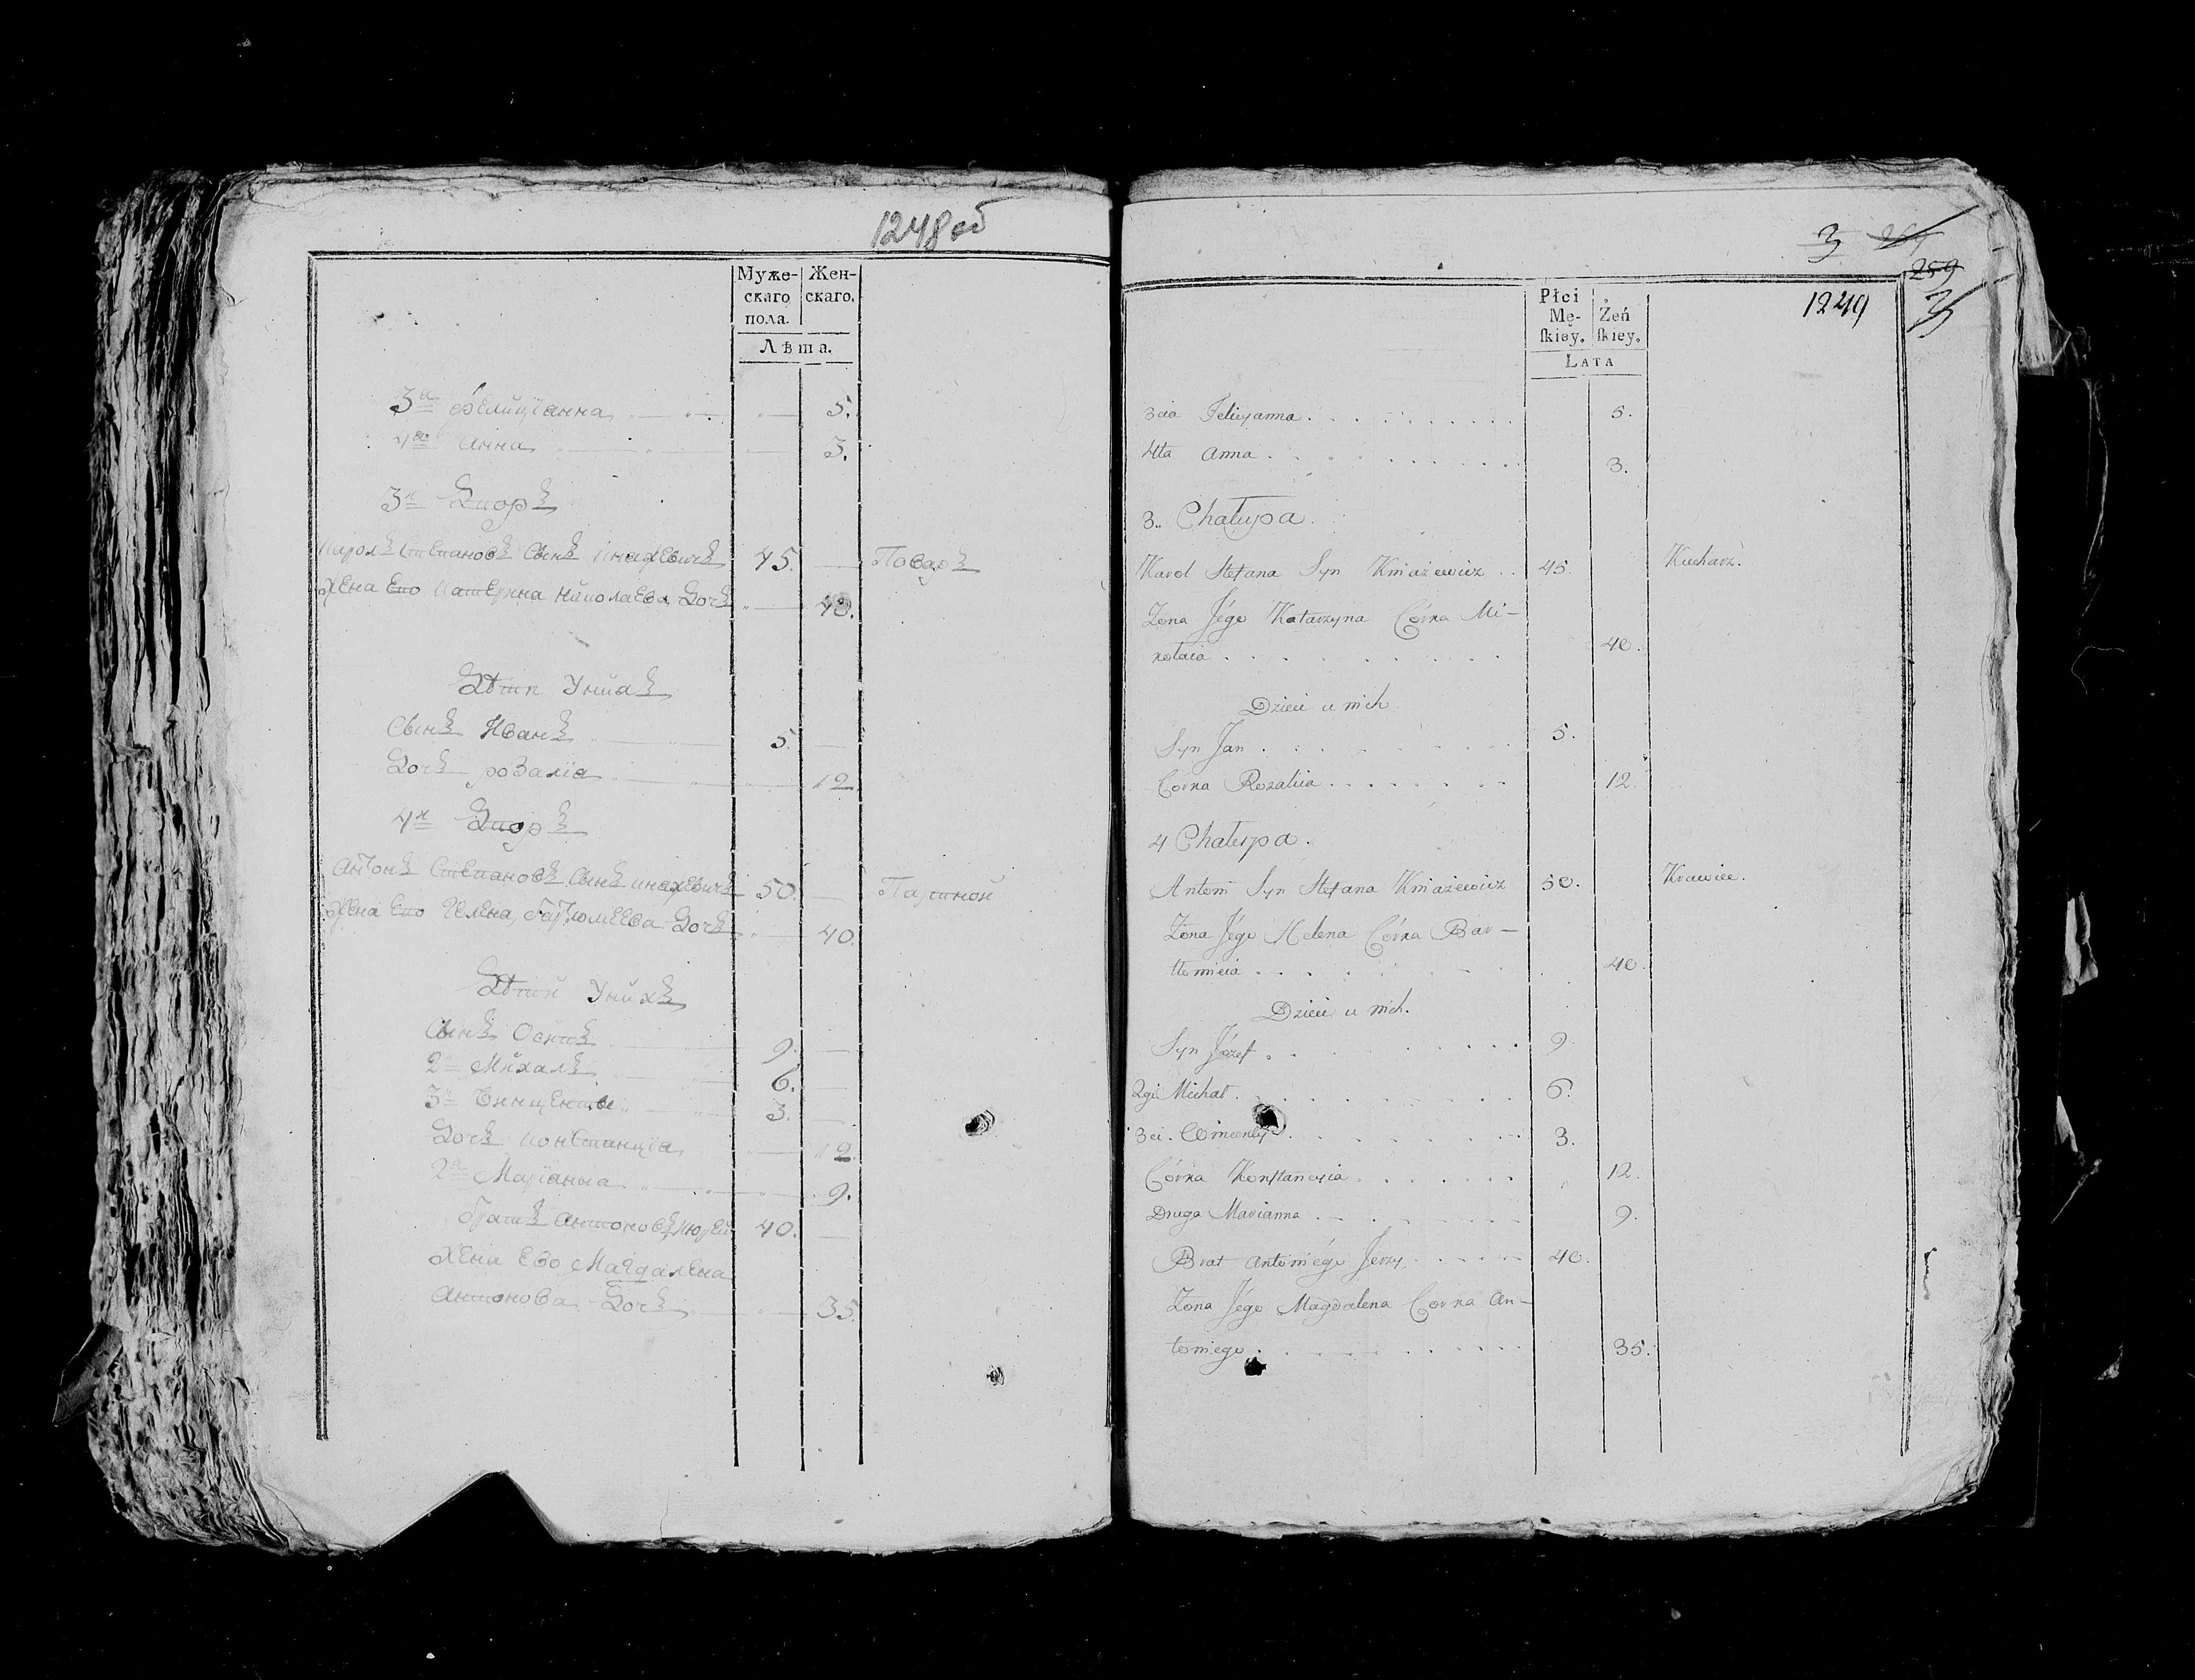 1248 об
Муже-
скаго
пола.
Жен-
скаго.
Лѣта.
3я Фелиціанна 5.
4я Анна 3.
3й Дворъ
Кароль Степановъ Сынъ Кнажевичъ 45. Поваръ
Жена Его Катерина Николаева Дочь 40.
Дѣти У нихъ
Сынъ Иванъ 5.
Дочь розалія 12
4й Дворъ
Антонъ Степановъ Сынъ Кнажевичъ 50. Партной
Жена Его Гелена, Бартломеева Дочь 40.
Дѣтй У нйхъ
Сынъ Осипъ 9.
2й Михалъ 6.
3й Винценты 3.
Дочь Констанція 12
2я Маріанна 9.
Братъ Антоновъ Юрей 40.
Жена Его Магдалена
Антонова Дочь 35
3 259
1249 3
Płci
Mę-
skiey.
Żeń
skiey.
Lata
3cia Felicyanna 5.
4ta Anna 3.
3.. Chałupa.
Karol Stefana Syn Kniażewicz 45. Kucharz.
Żona Jégo Katarzyna Córka Mi-
kołaia 40.
Dzieci u nich
Syn Jan 5.
Córka Rozaliia 12.
4 Chałupa.
Antoni Syn Stefana Kniażewicz 50. Krawiec.
Żona Jégo Helena Córka Bar-
tłomieia 40.
Dzieci u nich.
Syn Józef 9.
2gi Michał 6.
3ci. Wincenty 3.
Córka Konstancyia 12.
Druga Marianna 9.
Brat Antoniégo Jerzy 40.
Żona Jégo Magdalena Corka An-
toniego 35.